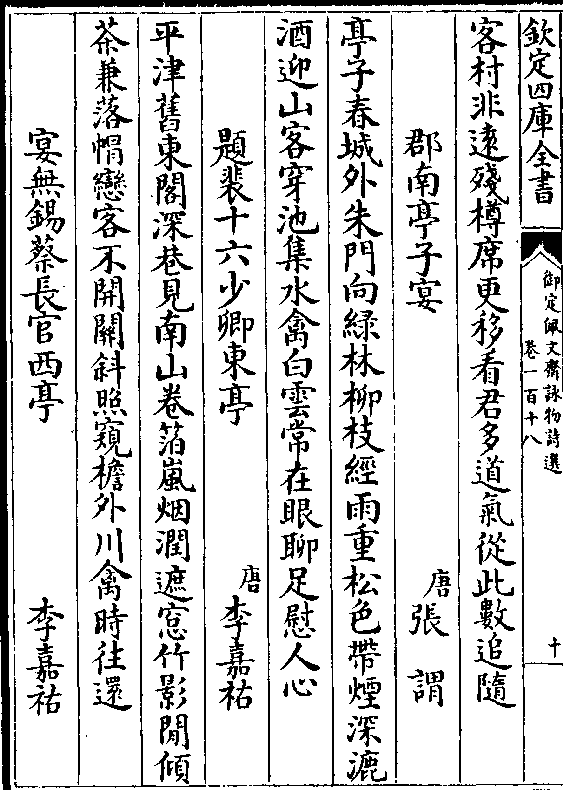 欽定四庫全書
御定佩文齋詠物詩選
卷一百十八
十
客村非遠殘樽席更移看君多道氣從此數追隨
郡南亭子宴
唐張謂
亭子春城外朱門向綠林柳枝經雨重松色帶煙深漉
酒迎山客穿池集水禽白雲常在眼聊足慰人心
題裴十六少卿東亭
唐李嘉祐
平津舊東閣深巷見南山卷箔嵐烟潤遮窓竹影閒傾
茶兼落帽戀客不開關斜照窺檐外川禽時往還
宴無錫蔡長官西亭
李嘉祐